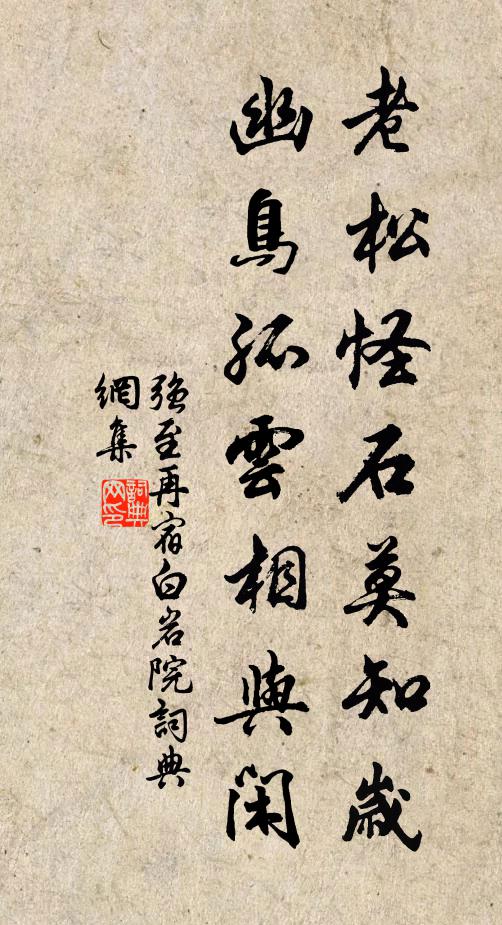 老松怪石莫知歲
幽鳥孤雲相與閑
強至再宿白岩院詞典
網集
詞典
网印